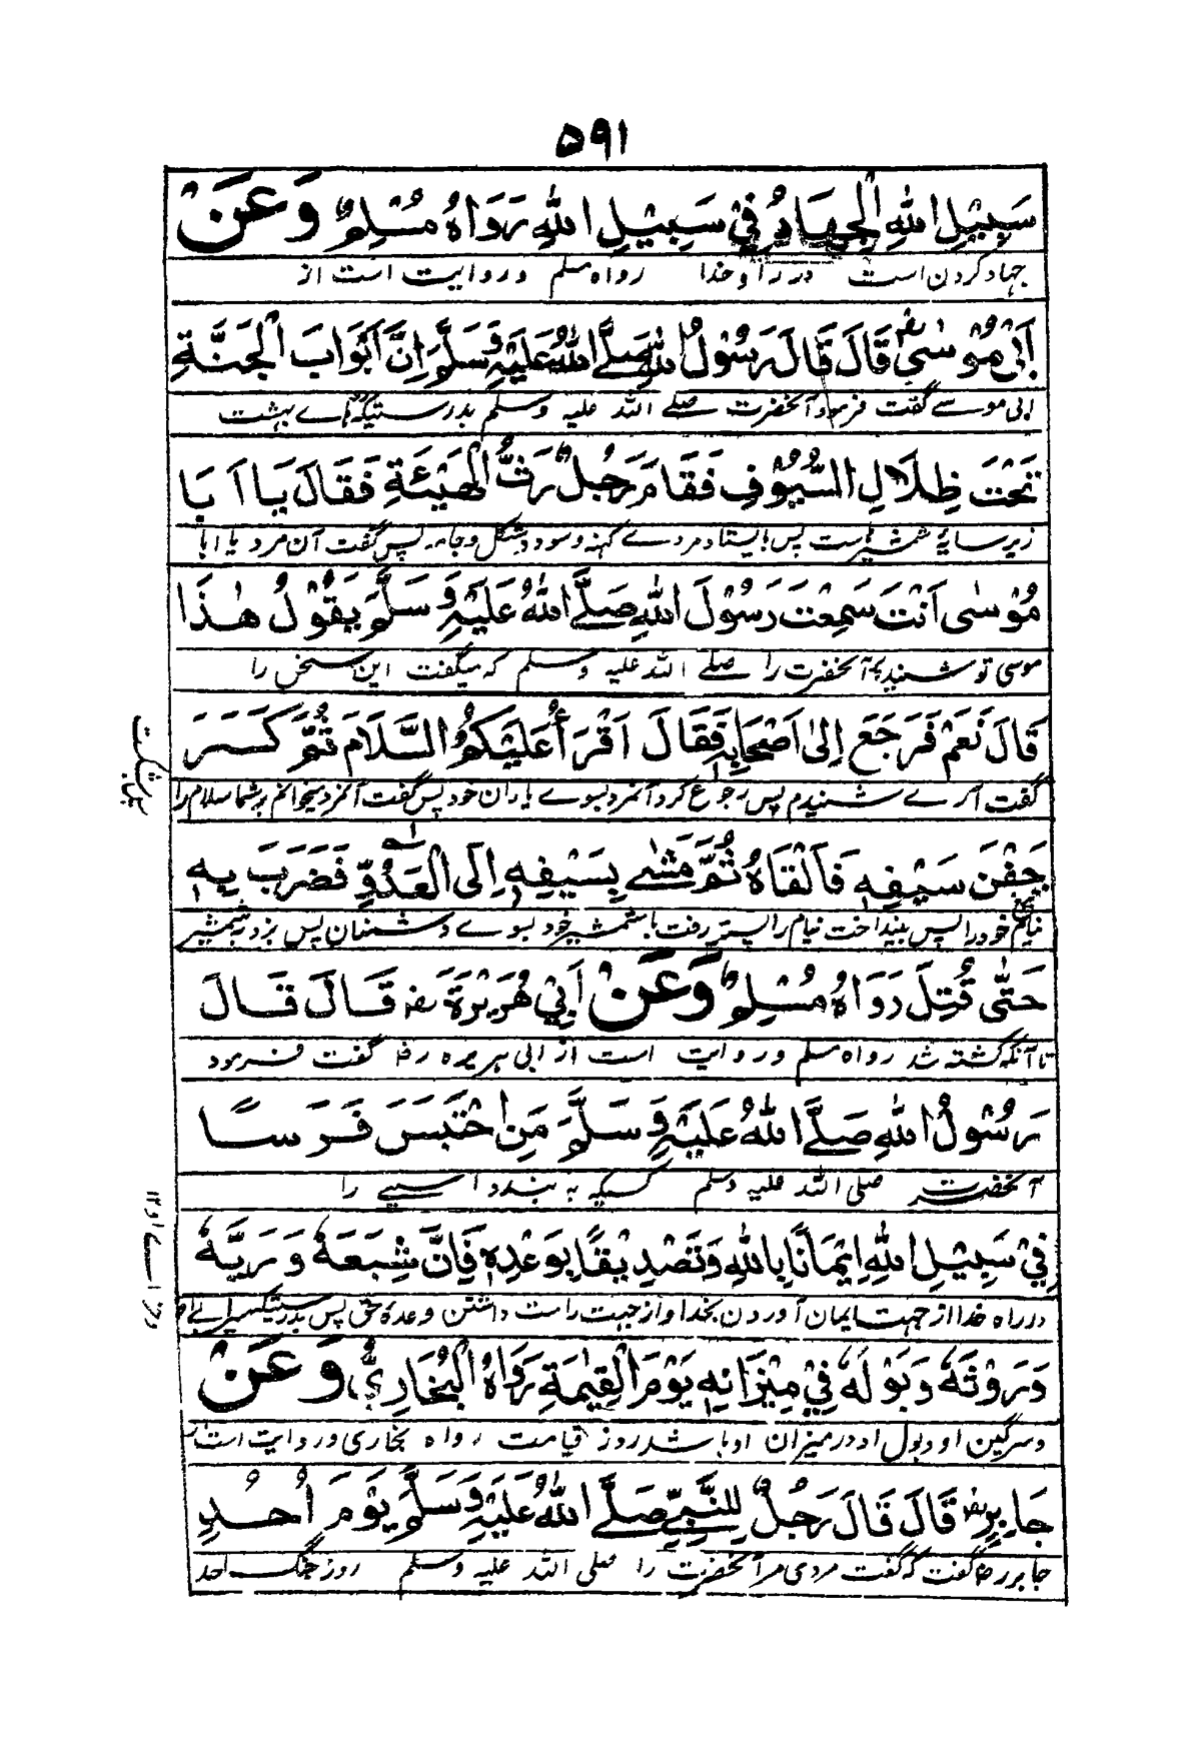 ۵۹۱
سَبِيْلِ اللهِ الْجِهَادُ فِيْ سَبِيْلِ اللهِ رَوَاهُ مُسْلِمٌ وَعَنْ
جہاد کردن است در راه خدا رواه مسلم و روایت است از
اَبِیْ مُوْسٰی رضہ قَالَ قَالَ رَسُوْلُ اللهِ صَلَّے اللهُ عَلَيْهِ وَسَلَّمَ اِنَّ اَبْوَابَ الْجَنَّةِ
ابی موسے گفت فرمود آنحضرت صلے اللہ علیہ وسلم بدرستیکہ بہشت
تَحْتَ ظِلَالِ السُّيُوْفِ فَقَامَ رَجُلٌ رَثُّ الْهَيْئَةِ فَقَالَ يَا اَبَا
زیر سایۂ شمشیرہاست پس بایستاد مردے کہنہ وسودہ شکل وجامہ پس گفت آن مرد یا ابا
مُوْسٰی اَنْتَ سَمِعْتَ رَسُوْلَ اللهِ صَلَّے اللهُ عَلَيْهِ وَسَلَّمَ يَقُوْلُ هٰذَا
موسی تو شنیدی آنحضرت را صلے اللہ علیہ وسلم کہ میگفت این سخن را
قَالَ نَعَمْ فَرَجَعَ اِلٰی اَصْحَابِهٖ فَقَالَ اَقْرَأُ عَلَيْكُمُ السَّلَامَ ثُمَّ كَسَرَ
گفت آرے شنیدم پس رجوع کرد آنمرد بسوے یاران خود پس گفت آنمرد میخوانم بر شما سلام را
جَفْنَ سَيْفِهٖ فَاَلْقَاهُ ثُمَّ مَشٰے بِسَيْفِهٖ اِلَی الْعَدُوِّ فَضَرَبَ بِهٖ
نیام خود را پس بینداخت نیام را پستر رفت با شمشیر خود بسوے دشمنان پس بزد بشمشیر
حَتّٰی قُتِلَ رَوَاهُ مُسْلِمٌ وَعَنْ اَبِیْ هُرَيْرَةَ رضہ قَالَ قَالَ
تا آنکہ کشتہ شد رواه مسلم و روایت است از ابی ہریرہ رضہ گفت فرمود
رَسُوْلُ اللهِ صَلَّے اللهُ عَلَيْهِ وَسَلَّمَ مَنِ احْتَبَسَ فَرَسًا
آنحضرت صلی اللہ علیہ وسلم کسیکہ بہ بندد اسپے را
فِيْ سَبِيْلِ اللهِ اِيْمَانًا بِاللهِ وَتَصْدِيْقًا بِوَعْدِهٖ فَاِنَّ شِبَعَهٗ وَرِيَّهٗ
در راه خدا از جہت ایمان آوردن بخدا و از جہت راست داشتن وعدۂ حق پس بدرستیکہ
وَرَوْثَهٗ وَبَوْلَهٗ فِيْ مِيْزَانِهٖ يَوْمَ الْقِيٰمَةِ رَوَاهُ الْبُخَارِيُّ وَعَنْ
وسرگین او و بول او در میزان او باشد روز قیامت رواه بخاری و روایت است
جَابِرٍ رضہ قَالَ قَالَ رَجُلٌ لِلنَّبِيِّ صَلَّے اللهُ عَلَيْهِ وَسَلَّمَ يَوْمَ اُحُدٍ
جابر رضہ گفت کہ گفت مردی مر آنحضرت را صلی اللہ علیہ وسلم روز جنگ احد